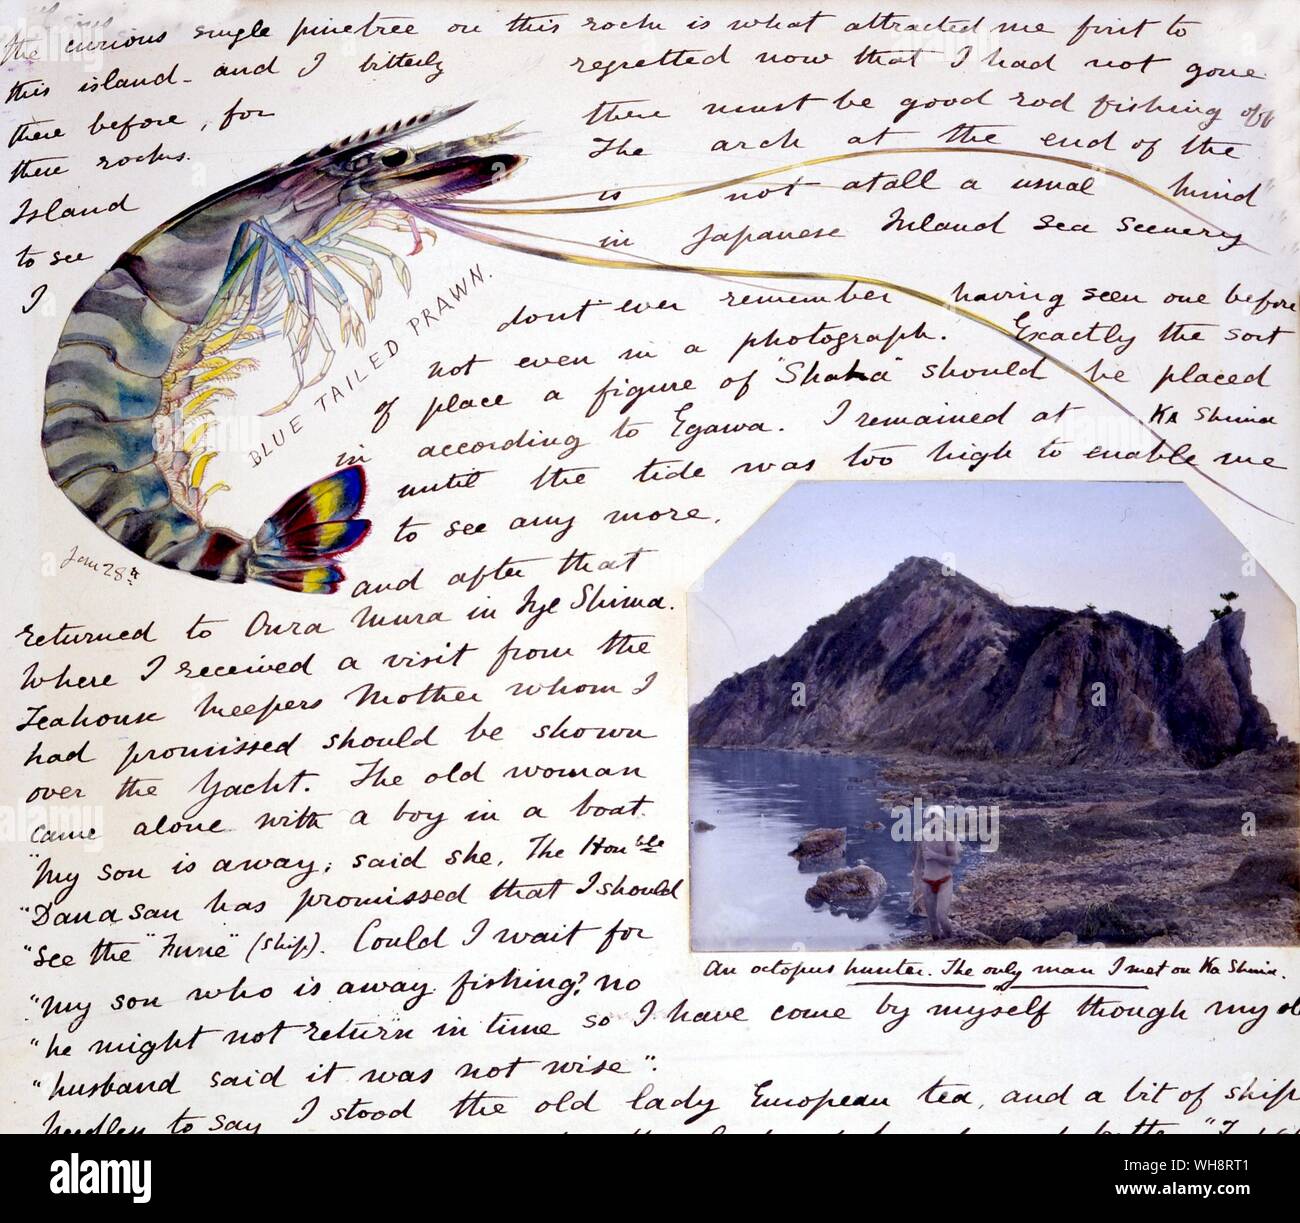 the curious single pinetree on this rock is what attracted me first to
this island - and I bitterly regretted now that I had not gone
there before, for there must be good rod fishing off
there rocks. The arch at the end of the
Island is not atall a usual kind
to see in Japanese Inland Sea Scenery
I dont ever remember having seen one before
not even in a photograph. Exactly the sort
of place a figure of "Shaka" should be placed
in according to Egawa. I remained at KA Shima
until the tide was too high to enable me
to see any more.
and after that
returned to Oura Mura in Iye Shima.
Where I received a visit from the
Teahouse keepers Mother whom I
had promissed should be shown
over the Yacht. The old woman
came alone with a boy in a boat.
"My son is away; said she, The Honble
"Dana san has promissed that I should
"see the "Fune" (ship). Could I wait for
"my son who is away fishing? no
"he might not return in time so I have come by myself though my ol
"husband said it was not wise".
Needless to say I stood the old lady European tea, and a bit of ship
BLUE TAILED PRAWN.
Jan 28th
An octopus hunter. The only man I met on Ka Shima.
alamy
WH8RT1
www.alamy.com